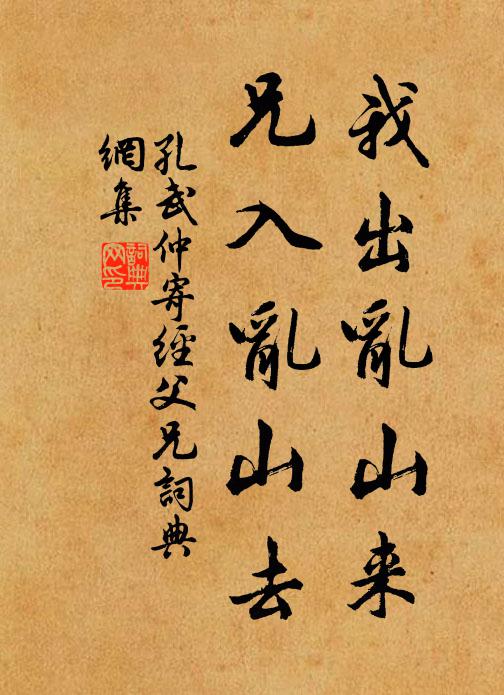 我出亂山来
兄入亂山去
孔武仲寄經父兄詞典
網集
詞典
网印